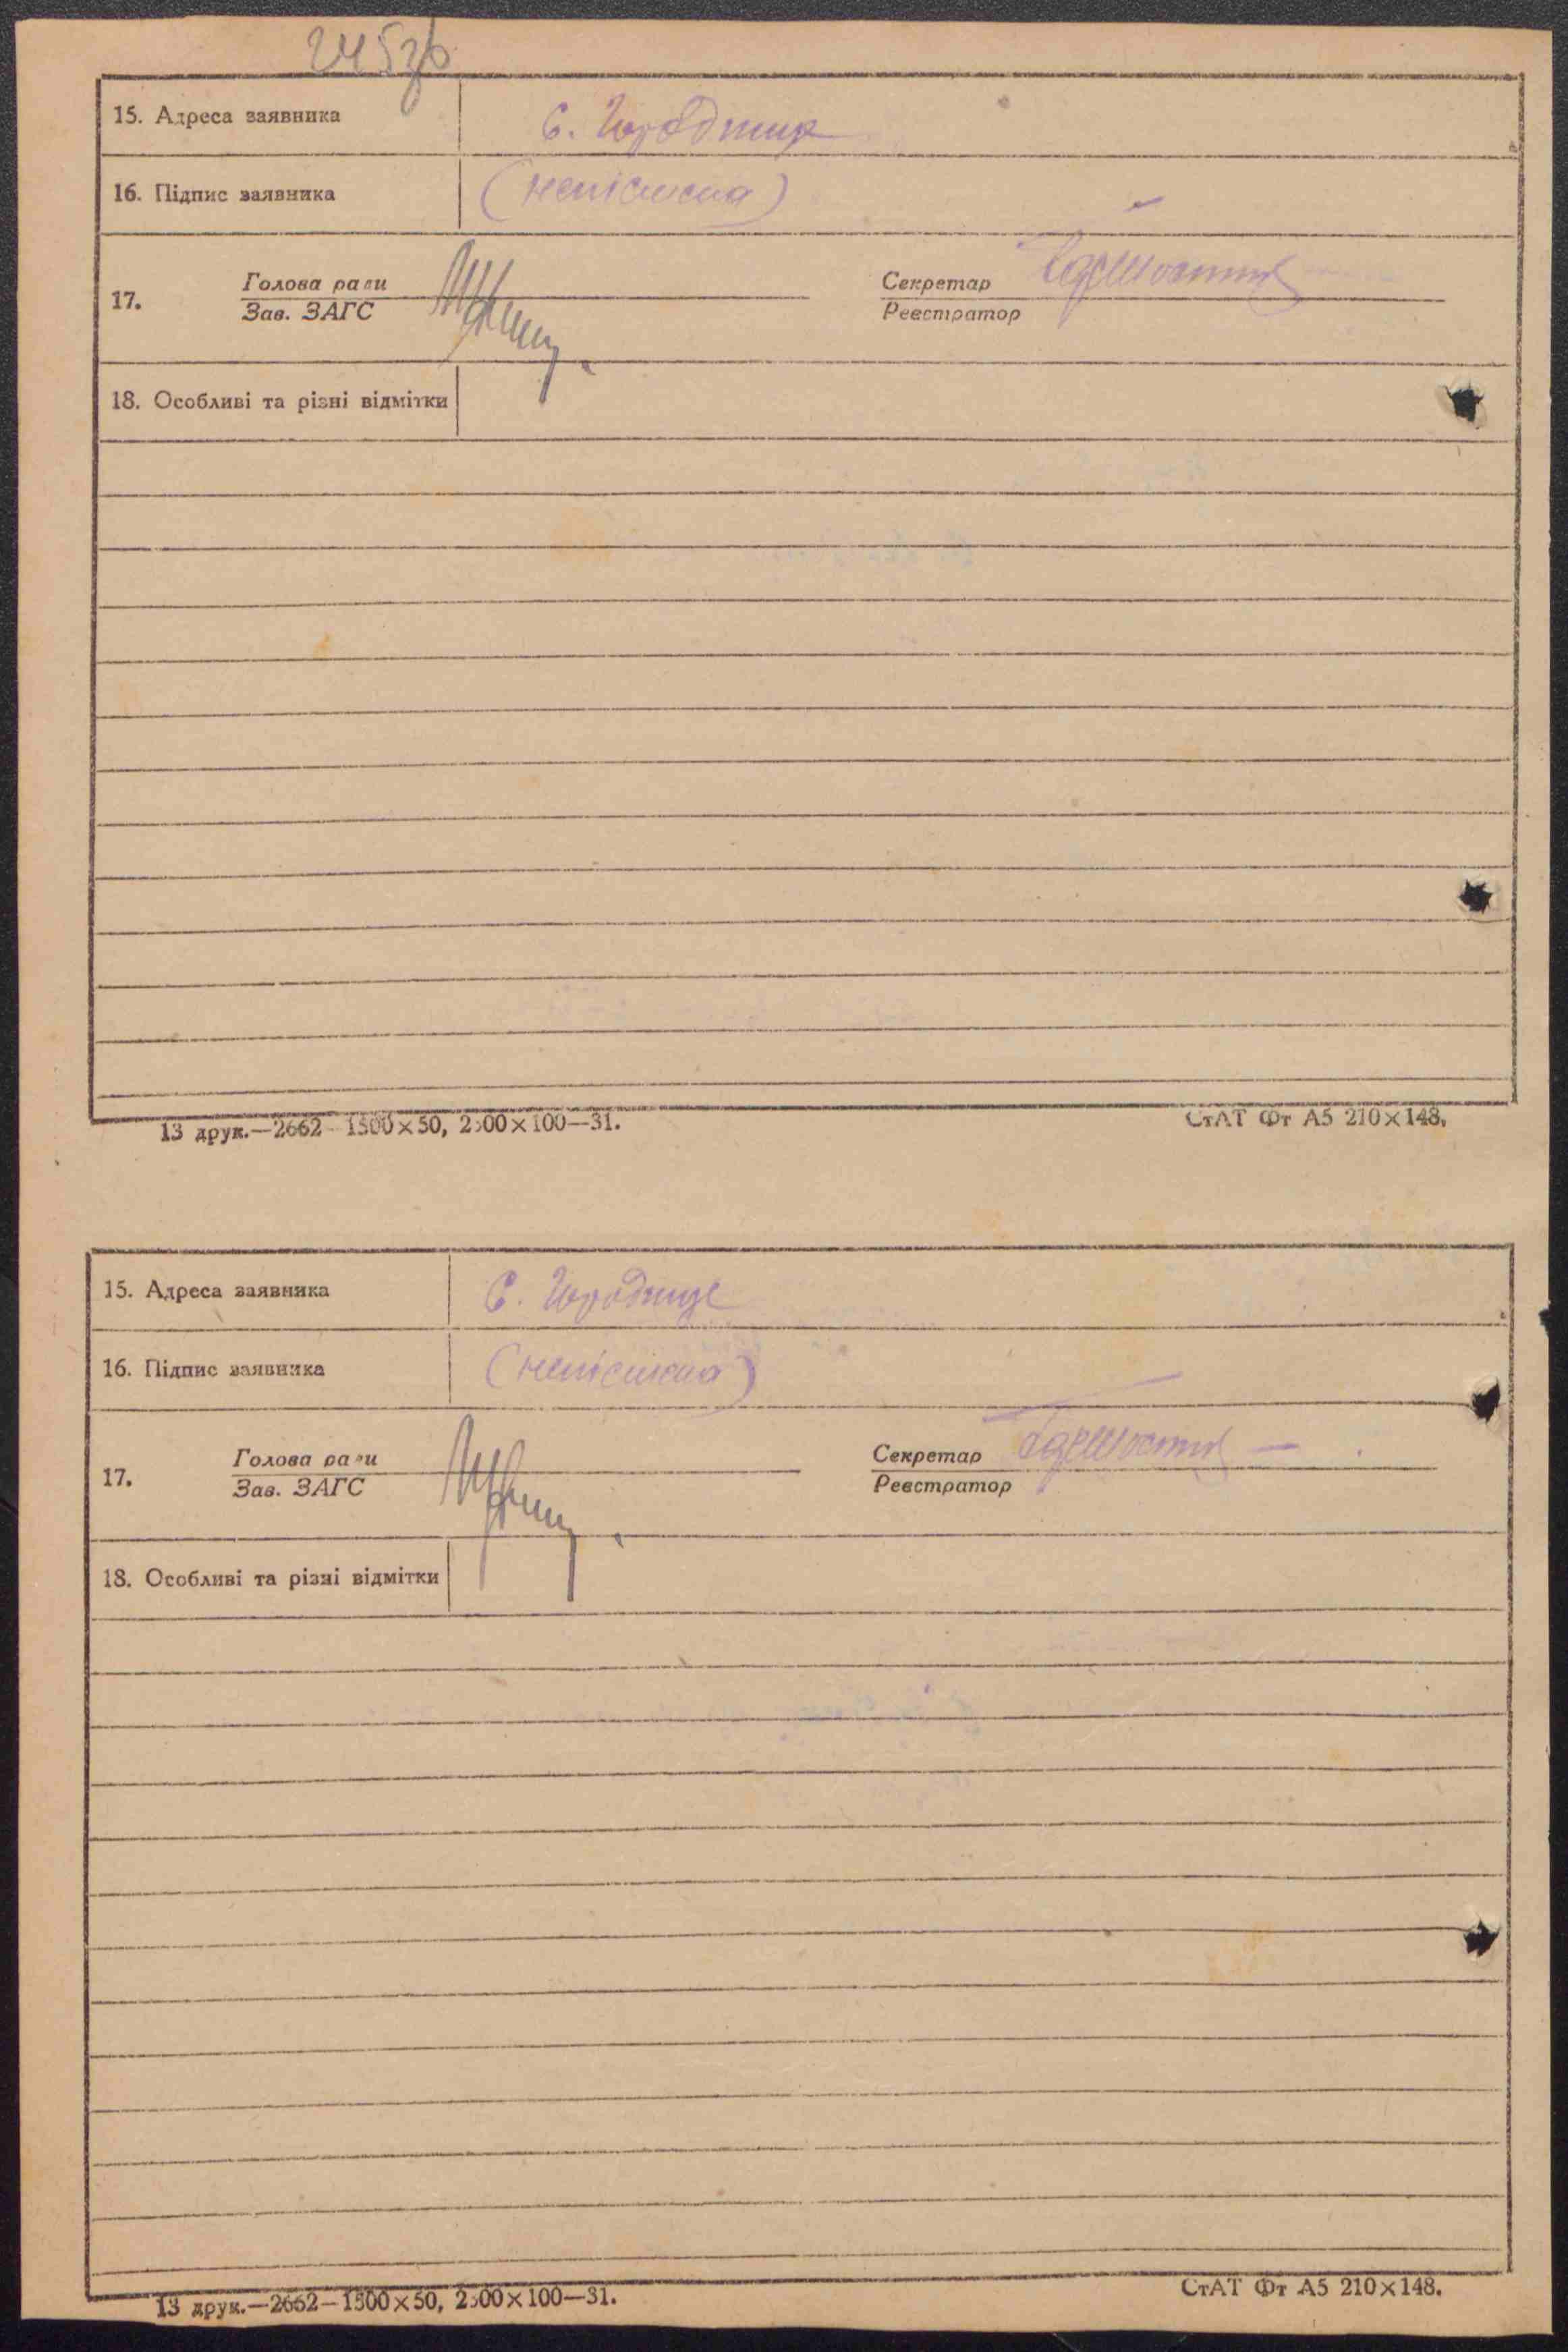 245зв
15. Адреса заявника С. Городище
16. Підпис заявника (неписьмена)
17. Голова ради Секретар
Зав. ЗАГС Реєстратор
18. Особливі та різні відмітки
13 друк.—2662—1500×50, 2500×100—31. СтАТ Фт А5 210×148.
15. Адреса заявника С. Городище
16. Підпис заявника (неписьмена)
17. Голова ради Секретар
Зав. ЗАГС Реєстратор
18. Особливі та різні відмітки
13 друк.—2662—1500×50, 2500×100—31. СтАТ Фт А5 210×148.